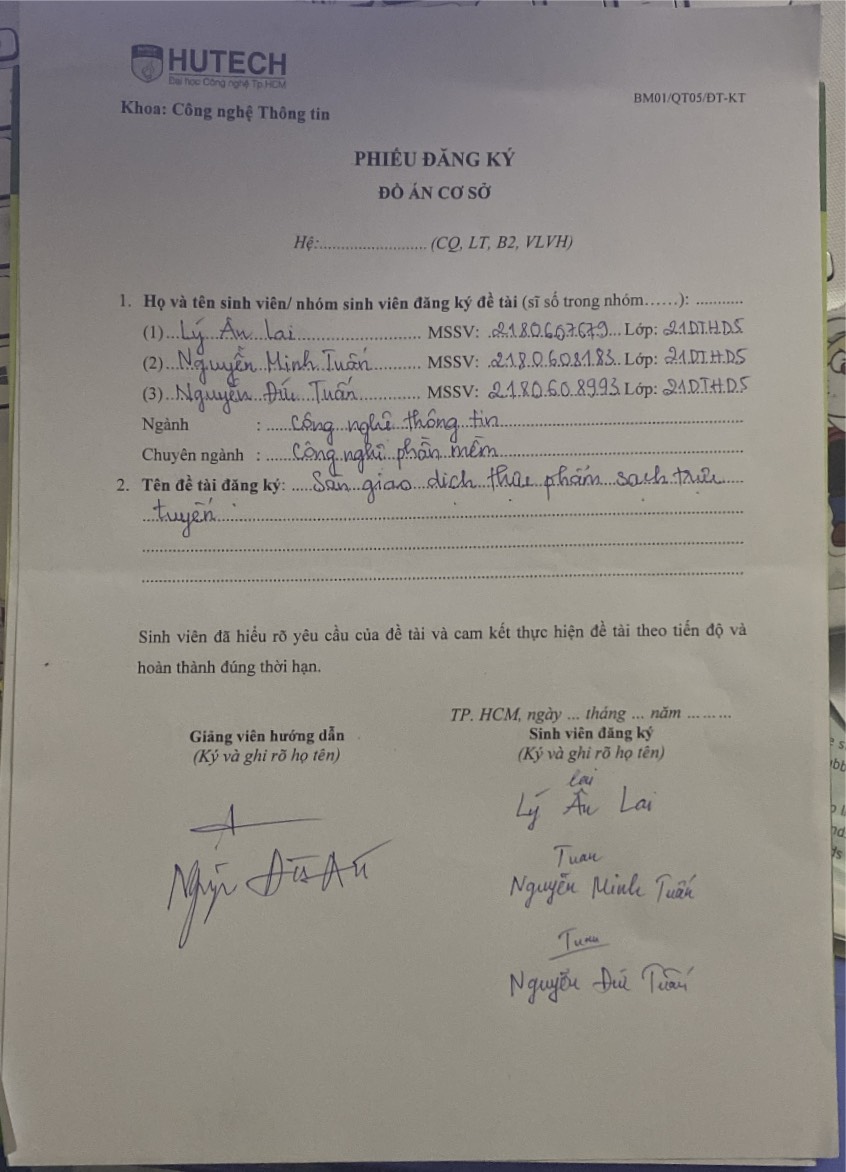 HUTECH
Đại học Công nghệ Tp.HCM
Khoa: Công nghệ Thông tin
BM01/QT05/ĐT-KT
PHIẾU ĐĂNG KÝ
ĐỒ ÁN CƠ SỞ
Hệ:........................ (CQ, LT, B2, VLVH)
1. Họ và tên sinh viên/ nhóm sinh viên đăng ký đề tài (sĩ số trong nhóm......): ...........
(1)...Lý Ân Lai............................ MSSV: 2180607679... Lớp: 21DTHD5
(2)...Nguyễn Minh Tuấn........... MSSV: 2180608183.. Lớp: 21DTHD5
(3)...Nguyễn Đức Tuấn.............. MSSV: 2180608993 Lớp: 21DTHD5
Ngành : ......Công nghệ thông tin......
Chuyên ngành : ......Công nghệ phần mềm......
2. Tên đề tài đăng ký: .....Sàn giao dịch thực phẩm sạch trực.....
...tuyến......
Sinh viên đã hiểu rõ yêu cầu của đề tài và cam kết thực hiện đề tài theo tiến độ và
hoàn thành đúng thời hạn.
TP. HCM, ngày ... tháng ... năm .........
Giảng viên hướng dẫn
(Ký và ghi rõ họ tên)
Sinh viên đăng ký
(Ký và ghi rõ họ tên)
Lai
Lý Ân Lai
Tuan
Nguyễn Minh Tuấn
Tuan
Nguyễn Đức Tuấn